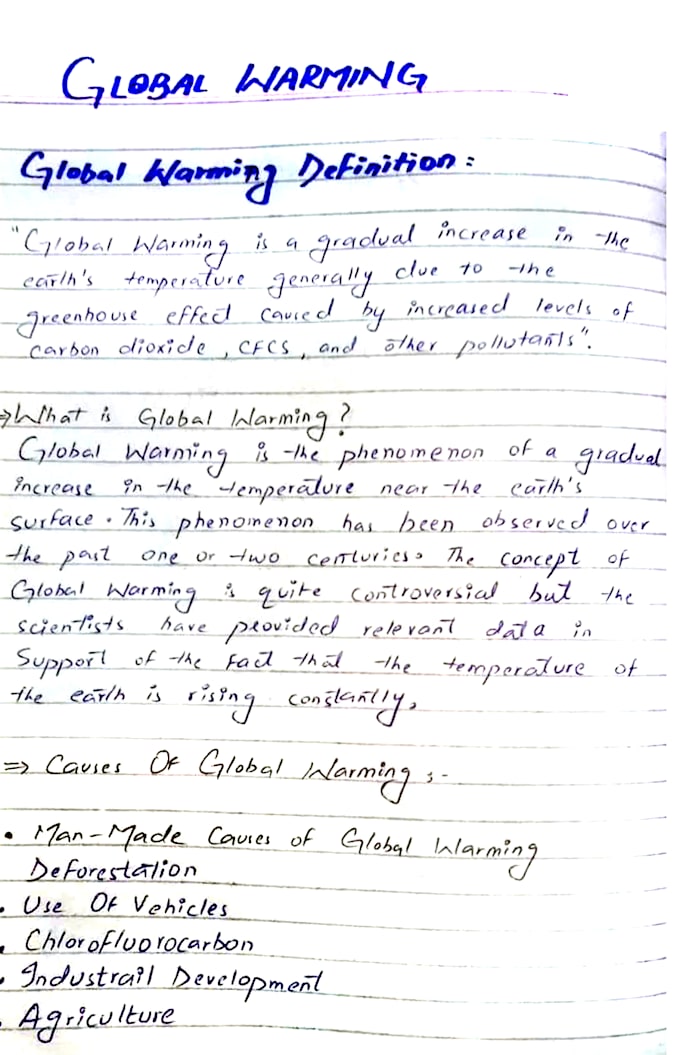 GLOBAL WARMING
Global Warming Definition:
"Global Warming is a gradual increase in the
earth's temperature generally due to the
greenhouse effect caused by increased levels of
carbon dioxide, CFCS, and other pollutants".
⇒What is Global Warming?
Global Warming is the phenomenon of a gradual
increase in the temperature near the earth's
surface. This phenomenon has been observed over
the past one or two centuries. The concept of
Global Warming is quite controversial but the
scientists have provided relevant data in
Support of the fact that the temperature of
the earth is rising constantly.
⇒ Causes Of Global Warming:-
• Man-Made Causes of Global Warming
Deforestation
• Use Of Vehicles
• Chlorofluorocarbon
• Industrail Development
• Agriculture